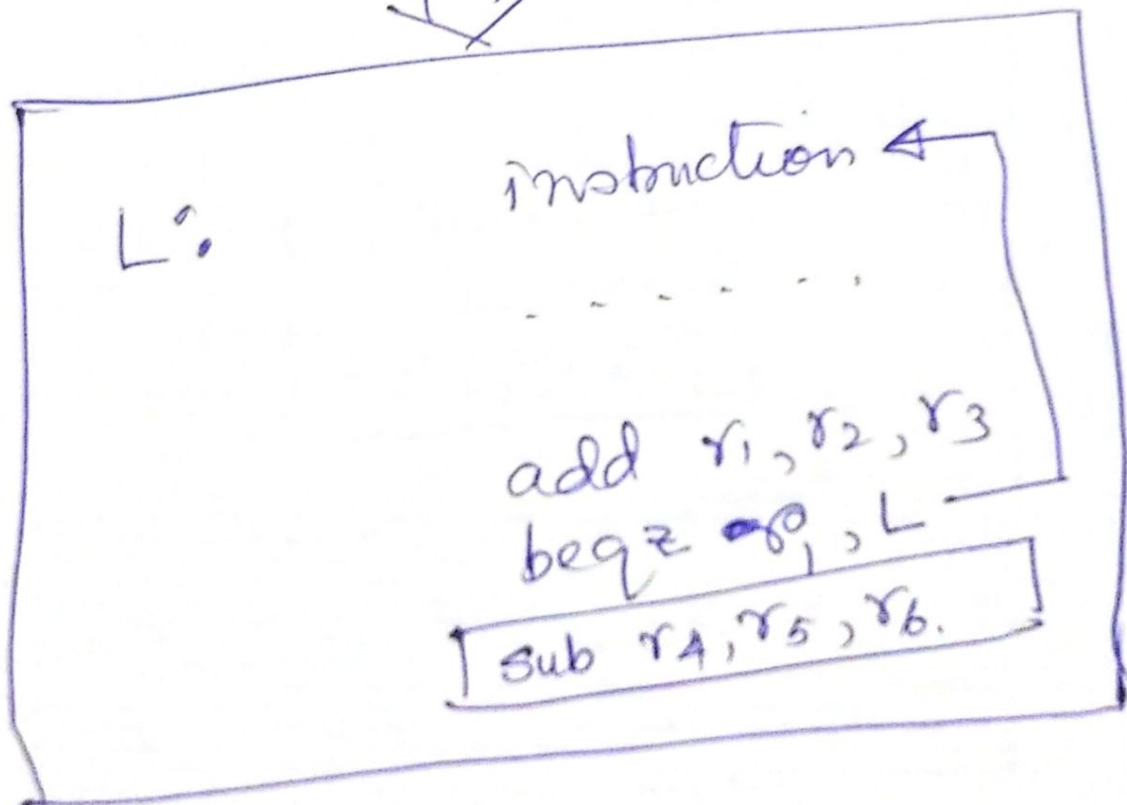 instruction
L:
. . . . . .
add r1, r2, r3
beqz r1, L
sub r4, r5, r6.